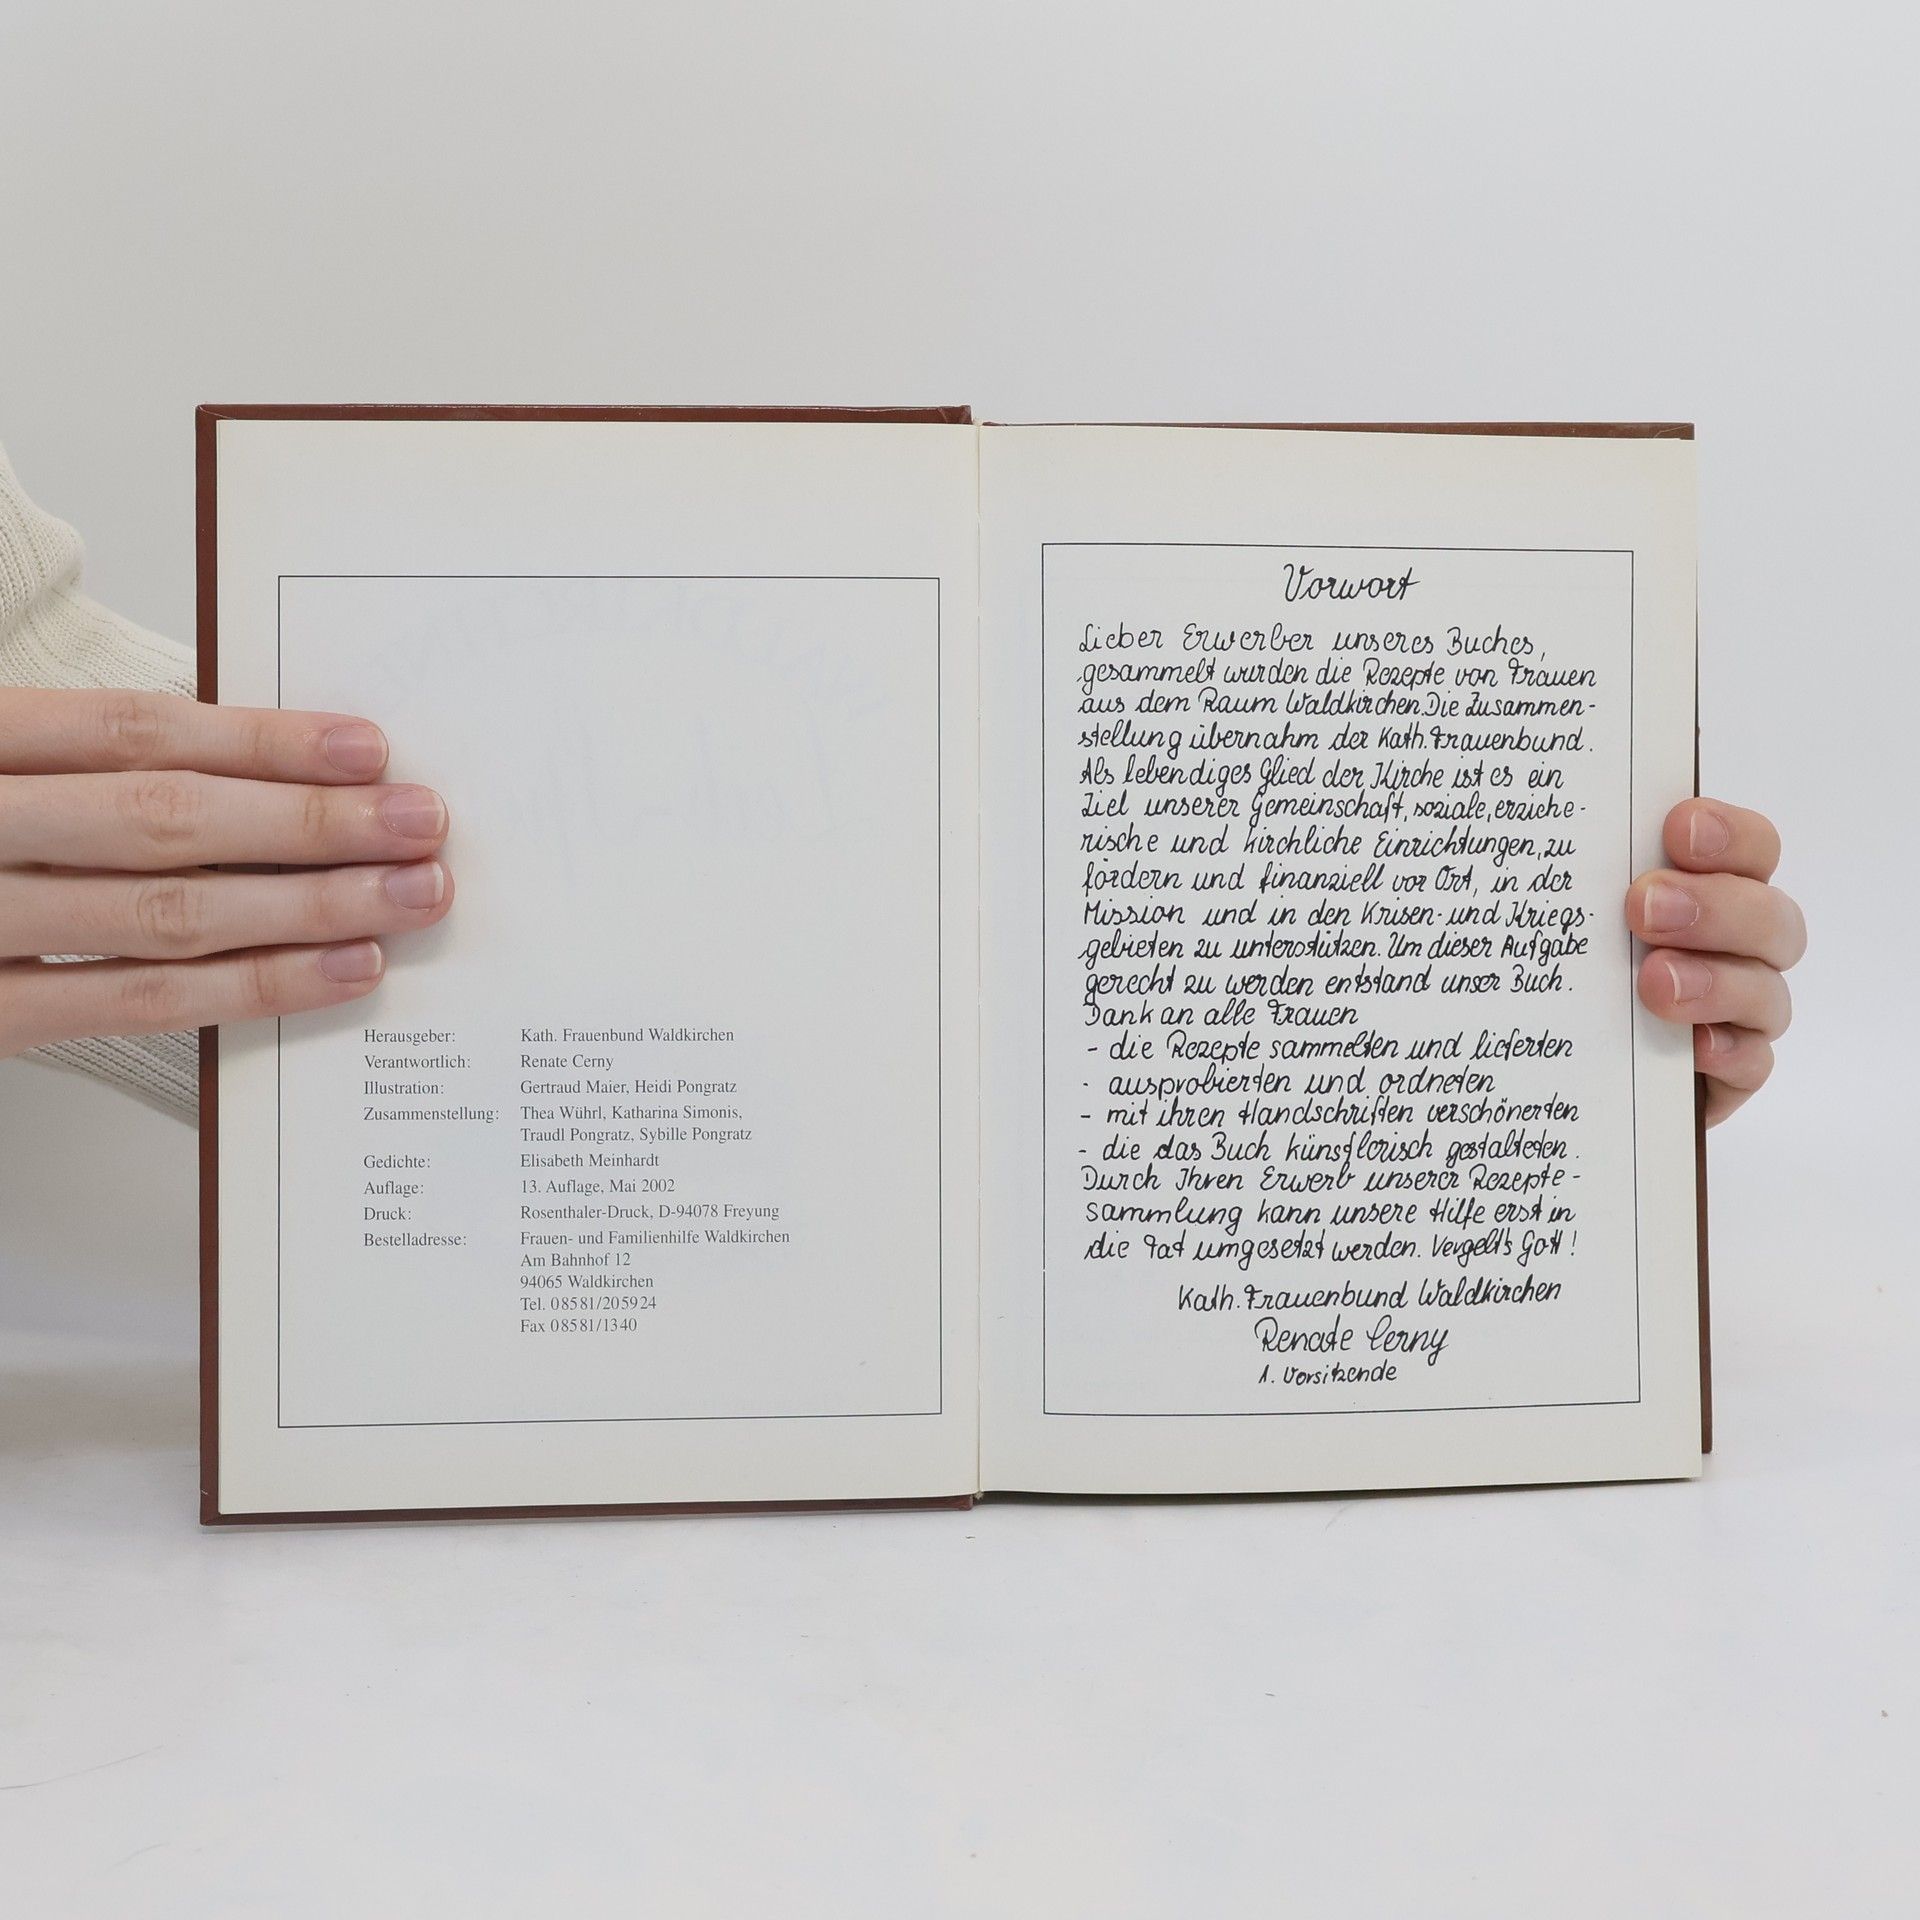 Herausgeber: Kath. Frauenbund Waldkirchen
Verantwortlich: Renate Cerny
Illustration: Gertraud Maier, Heidi Pongratz
Zusammenstellung: Thea Wührl, Katharina Simonis,
Traudl Pongratz, Sybille Pongratz
Gedichte: Elisabeth Meinhardt
Auflage: 13. Auflage, Mai 2002
Druck: Rosenthaler-Druck, D-94078 Freyung
Bestelladresse: Frauen- und Familienhilfe Waldkirchen
Am Bahnhof 12
94065 Waldkirchen
Tel. 08581/205924
Fax 08581/1340
Vorwort
Lieber Erwerber unseres Buches,
gesammelt wurden die Rezepte von Frauen
aus dem Raum Waldkirchen. Die Zusammen-
stellung übernahm der Kath. Frauenbund.
Als lebendiges Glied der Kirche ist es ein
Ziel unserer Gemeinschaft, soziale, erziehe-
rische und kirchliche Einrichtungen, zu
fördern und finanziell vor Ort, in der
Mission und in den Krisen- und Kriegs-
gebieten zu unterstützen. Um dieser Aufgabe
gerecht zu werden entstand unser Buch.
Dank an alle Frauen
- die Rezepte sammelten und lieferten
- ausprobierten und ordneten
- mit ihren Handschriften verschönerten
- die das Buch künstlerisch gestalteten.
Durch Ihren Erwerb unserer Rezepte-
sammlung kann unsere Hilfe erst in
die Tat umgesetzt werden. Vergelt's Gott!
Kath. Frauenbund Waldkirchen
Renate Cerny
1. Vorsitzende